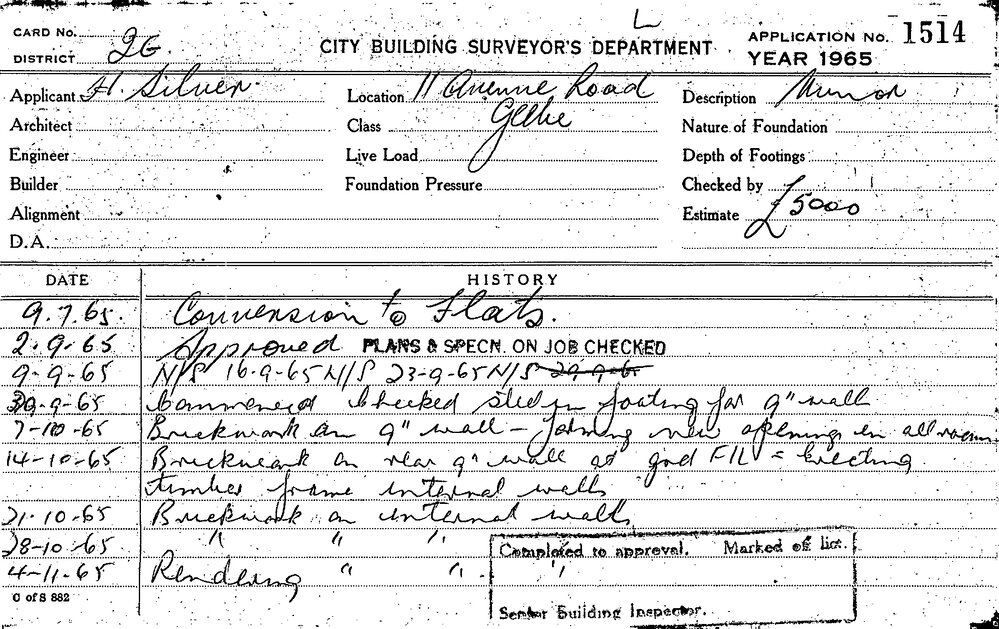 L
CARD No.
DISTRICT 2G.
CITY BUILDING SURVEYOR'S DEPARTMENT
APPLICATION No. 1514
YEAR 1965
Applicant H. Silver
Location 11 Avenue Road
Description
Architect
Class Glebe
Nature of Foundation
Engineer
Live Load
Depth of Footings
Builder
Foundation Pressure
Checked by
Alignment
Estimate £5000
D.A.
DATE HISTORY
9.7.65. Conversion to Flats.
2-9-65 Approved PLANS & SPECN. ON JOB CHECKED
9-9-65 N/S 16-9-65 N/S 23-9-65 N/S 29-9-65
30-9-65 Commenced Checked steel in footing for 9" wall
7-10-65 Brickwork on 9" wall - forming new openings in all rooms
14-10-65 Brickwork on rear 9" wall at grd FlL = Erecting
timber frame internal walls
21-10-65 Brickwork on internal walls
28-10-65 " " "
4-11-65 Rendering " " "
Completed to approval. Marked off list.
Senior Building Inspector.
C of S 882